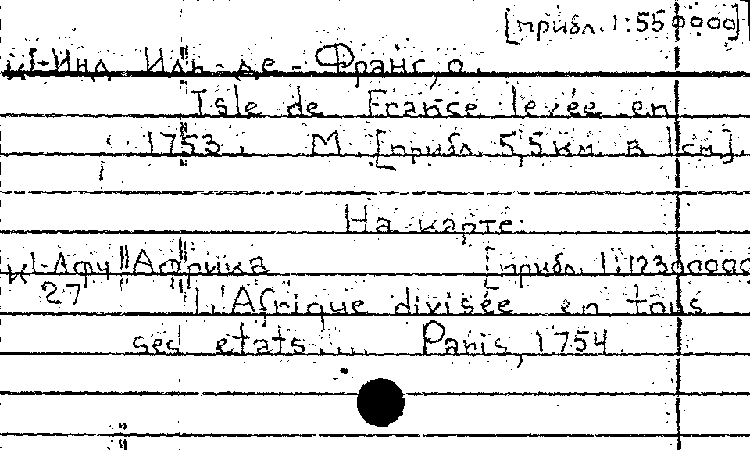 [прибл. 1:550000]
К1-Инд Иль-де-Франс, о.
Isle de France levée en
1753. М. [прибл. 5,5 км в 1 см].
На карте:
К1-Афр Африка [прибл. 1:12300000
27 L'Afrique divisée en tous
ses etats... Paris, 1754